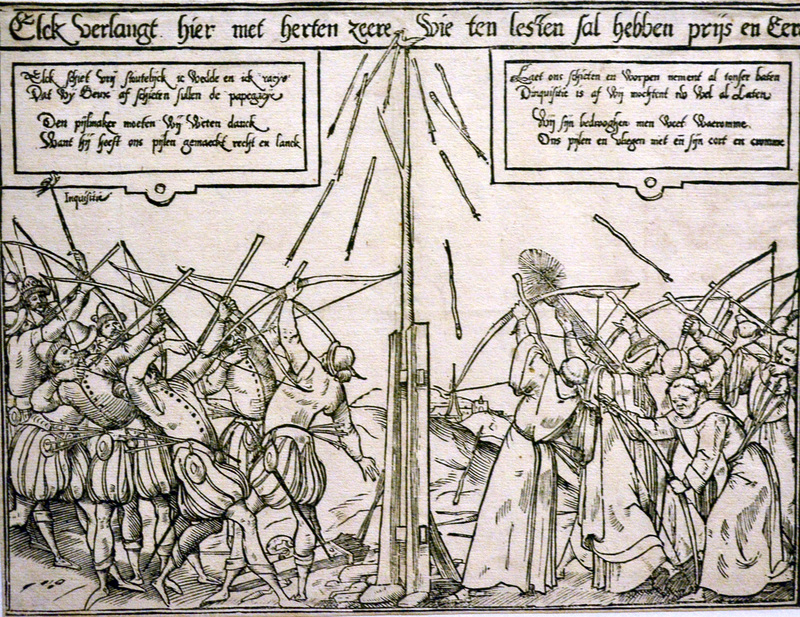 Elck verlangt hier met herten zeere Wie ten lesten sal hebben prijs en Eer
Elck schiet vrij stoutelijck ic wedde en ick
Dat wij Geux af schieten sullen de papegaye
Den pijlmaker moeten wij weten danck
Want hij heeft ons pijlen gemaeckt recht en lanck
Laet ons schieten en worpen nement al tonser baten
Dinquisitie is af wij mochtent nv wel al Laten
Wij sijn bedrooghen men weet waeromme
Ons pijlen en vliegen niet en sijn cort en cromme
Inquisitie